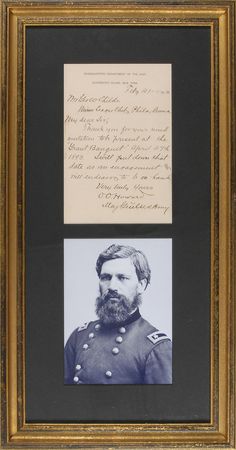 HEADQUARTERS DEPARTMENT OF THE EAST,
GOVERNORS ISLAND, NEW YORK.
Feby
Mr Geo Childs
Union League Club, Phila, Penna
My dear Sir;
Thank you for your kind
invitation to be present at the
"Grant Banquet" April 27th
1893. I will put down that
date as an engagement &
will endeavor to be on hand.
Very truly Yours
O. O. Howard
Maj. Gen'l U.S. Army